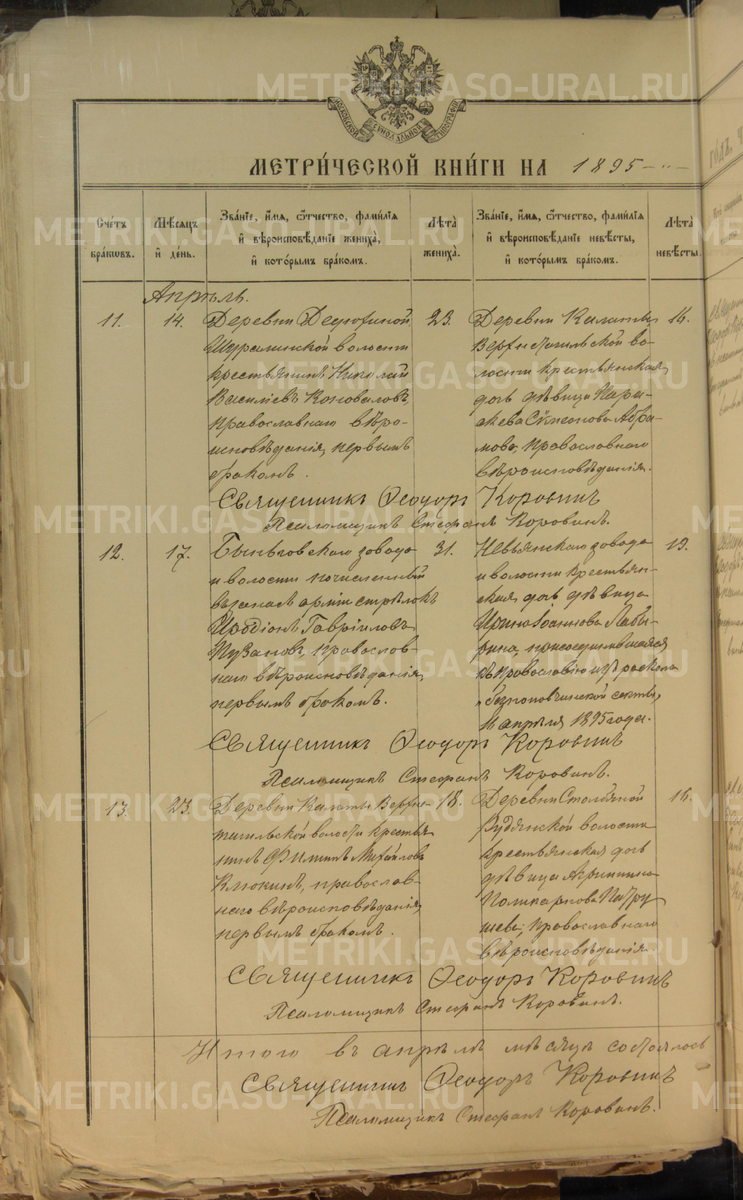 МЕТРИ́ЧЕСКОЙ КНИ́ГИ НА 1895
Сче́тъ бра́кѡвъ.
Мѣ́сяцъ и҆ де́нь.
Зва́нїе, и҆́мя, ѻ҆́тчество, фами́лїя и҆ вѣроисповѣ́данїе жениха̀, и҆ кото́рымъ бра́комъ.
Лѣ́та жениха̀.
Зва́нїе, и҆́мя, ѻ҆́тчество, фами́лїя и҆ вѣроисповѣ́данїе невѣ́сты, и҆ кото́рымъ бра́комъ.
Лѣ́та невѣ́сты
Апрѣль.
11.
14.
Деревни
Шуралинской волости
крестьянинъ Николай
Васильевъ Коноваловъ
православнаго вѣро-
исповѣданія, первымъ
бракомъ.
23.
Деревни Калаты
Верхнетагильской во-
лости крестьянская
дочь дѣвица Пара-
скева Симеонова Абра-
мова, православнаго
вѣроисповѣданія.
16.
Священникъ Ѳеодоръ Коровинъ
Псаломщикъ Стефанъ Коровинъ.
12.
17.
Быньговскаго завода
и волости зачисленный
въ запасъ арміи стрѣлокъ
Иродіонъ Гавріиловъ
православ-
наго вѣроисповѣданія,
первымъ бракомъ.
31.
Невьянскаго завода
и волости крестьян-
ская дочь дѣвица
Ирина Іоаннова
присоединившаяся
къ православію изъ раскола
безпоповщинской секты,
16 апрѣля 1895 года.
19.
Священникъ Ѳеодоръ Коровинъ
Псаломщикъ Стефанъ Коровинъ.
13.
23.
Деревни Калаты Верхне-
тагильской волости крестья-
нинъ Филиппъ Михайловъ
Клюкинъ, православ-
наго вѣроисповѣданія,
первымъ бракомъ.
18.
Деревни Столбяной
Рудянской волости
крестьянская дочь
дѣвица Агриппина
Поликарпова Патру-
шева, православнаго
вѣроисповѣданія.
16.
Священникъ Ѳеодоръ Коровинъ
Псаломщикъ Стефанъ Коровинъ.
Итого въ апрѣлѣ мѣсяцѣ состоялось
Священникъ Ѳеодоръ Коровинъ
Псаломщикъ Стефанъ Коровинъ.
METRIKI.GASO-URAL.RU